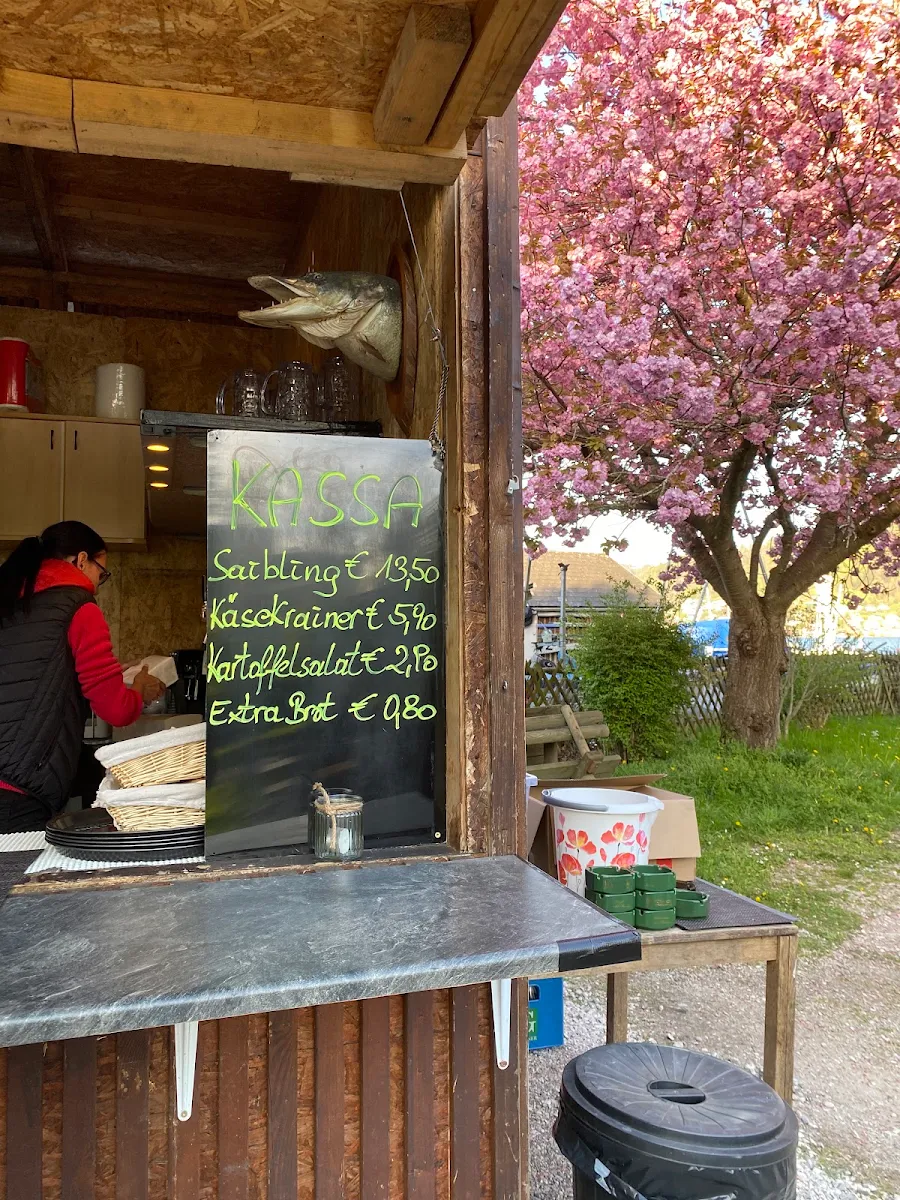 KASSA
Saibling € 13,50
Käsekrainer € 5,90
Kartoffelsalat € 2,90
Extra Brot € 0,80